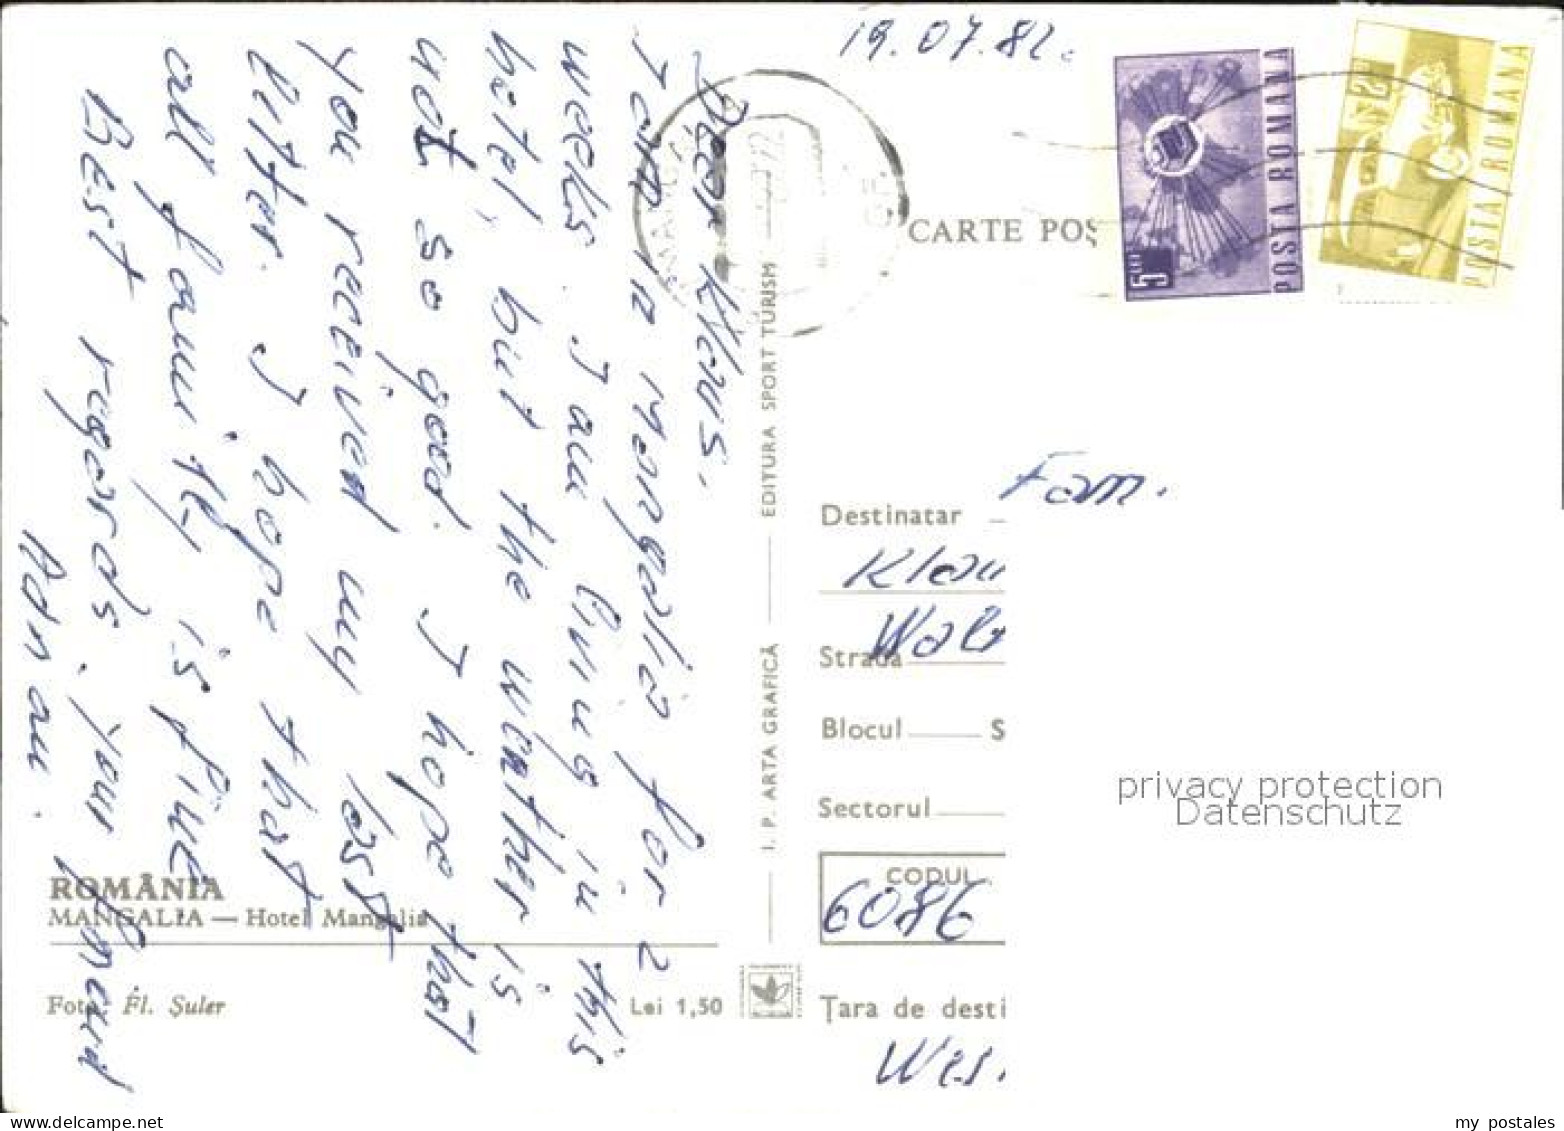 19.07.82.
Dear Klaus.
I am in Mangalia for 2
weeks. I am living in this
hotel, but the weather is
not so good. I hope that
you received my last
letter. I hope that
all family is fine
Best regards. Your friend
Adrian.
ROMÂNIA
MANGALIA — Hotel Mangalia
Foto: Fl. Șuler
Lei 1,50
I. P. ARTA GRAFICĂ
EDITURA SPORT TURISM
CARTE POȘ
5 LEI
POSTA ROMANA
POSTA ROMANA
Fam.
Destinatar
Klau
Strada
Blocul S
Sectorul
CODUL
6086
Țara de desti
Wes
privacy protection
Datenschutz
my postales